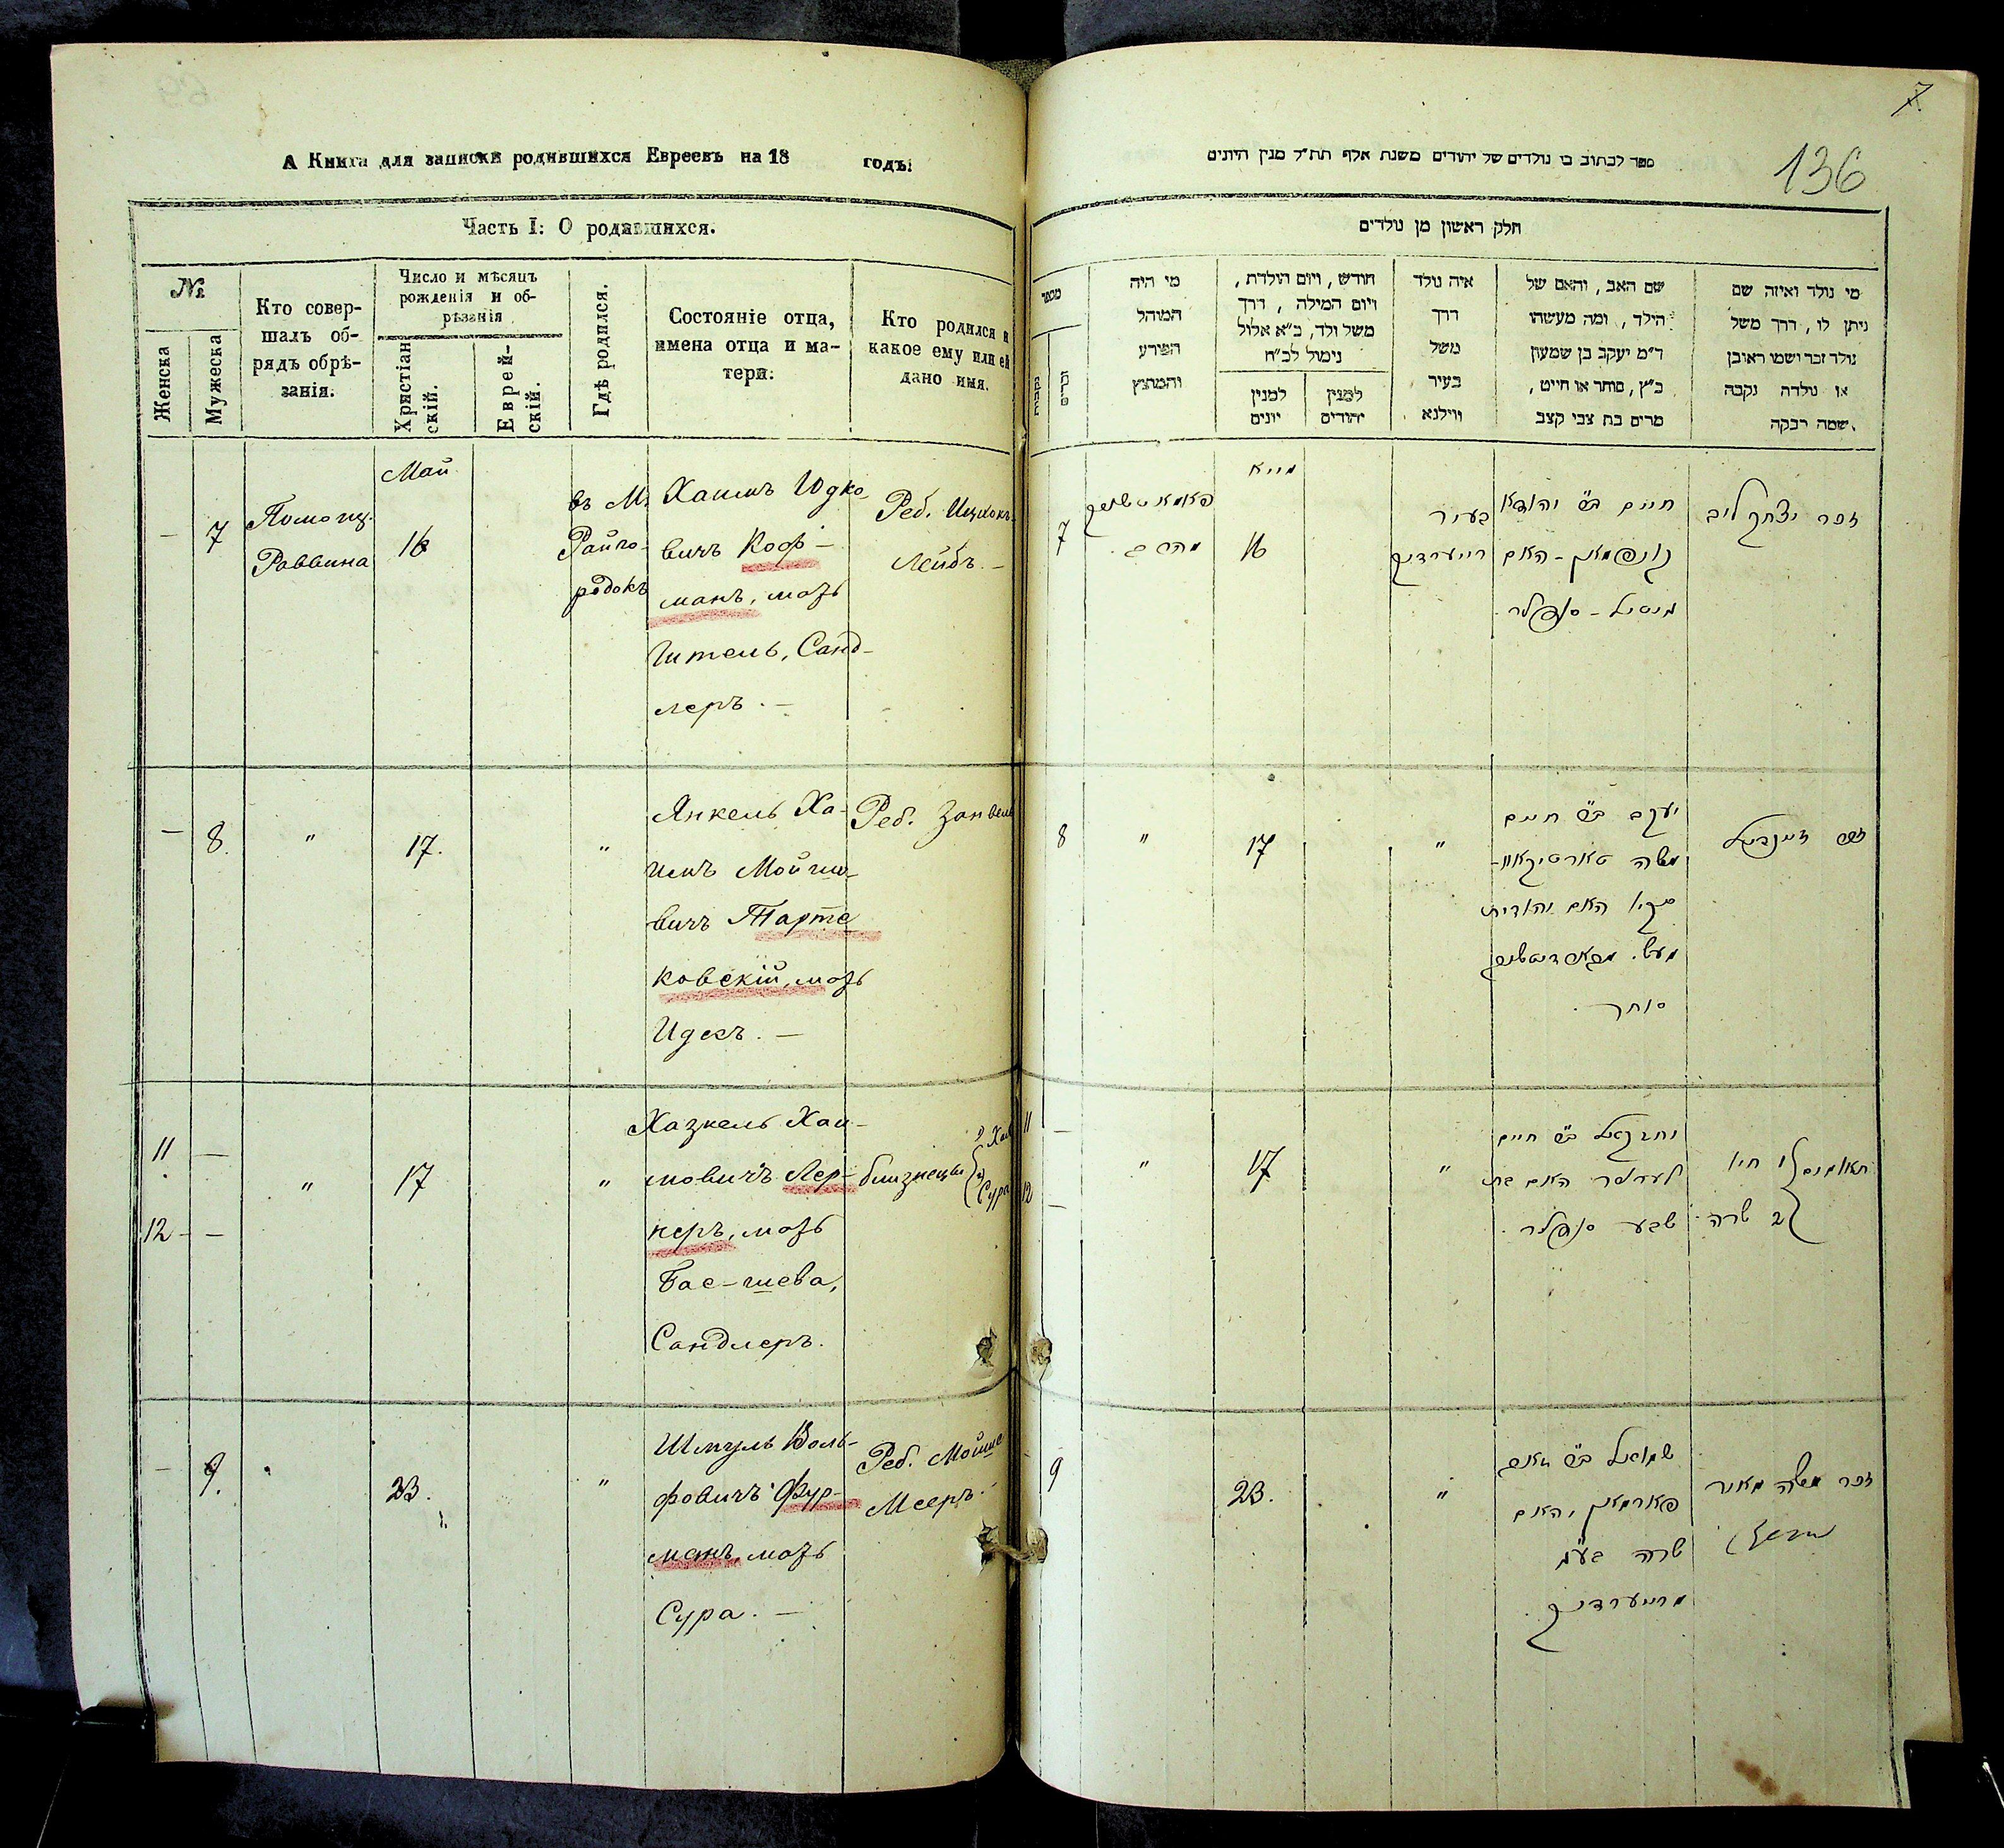 А Книга для записки родившихся Евреевъ на 18 годъ.
Часть I: О родившихся.
№
Женска
Мужеска
Кто совер-
шалъ об-
рядъ обрѣ-
занія.
Число и мѣсяцъ
рожденія и об-
рѣзанія
Христіан
скій.
Еврей-
скій.
Гдѣ родился.
Состояніе отца,
имена отца и ма-
тери.
Кто родился и
какое ему или ей
дано имя.
— 7
Помощ.
Раввина
Май
16
въ М.
Райго-
родокъ
Хаимъ Юдко
вичъ Коф-
манъ, мать
Гитель, Санд-
леръ. —
Реб. Ицхокъ
Лейбъ. —
— 8. " 17. "
Янкель Ха-
имъ Мойшо-
вичъ Тарта
ковскій, мать
Идесъ. —
Реб. Занвель
11 —
12 - —
" 17 "
Хазкель Хаи-
мовичъ Лер-
неръ, мать
Бас-шева,
Сандлеръ.
близнецы
Хая
2 Сура
— 9. 23. "
Шмуль Воль-
фовичъ Фур-
манъ, мать
Сура. —
Реб. Мойше
Мееръ.
7
136
ספר לכתוב בו נולדים של יהודים משנת אלף תת״ל מנין היונים
חלק ראשון מן נולדים
מספר
נקבות
זכרים
מי היה
המוהל
הפורע
והמוצץ
חודש, ויום הולדת,
ויום המילה, דרך
משל ולד, כ״א אלול
נימול לכ״ח
למנין
יונים
למנין
יהודים
איה נולד
דרך
משל
בעיר
ווילנא
שם האב, והאם של
הילד, ומה מעשהו
ד״מ יעקב בן שמעון
כ״ץ, סוחר או חייט,
מרים בת צבי קצב
מי נולד ואיזה שם
ניתן לו, דרך משל
נולד זכר ושמו ראובן
או נולדה נקבה
שמה רבקה.
7
מייא
16
בעיר
חיים
האם
זכר יצחק ליב
8 " 17 "
יעקב חיים
משה
האם יהודית
סוחר
זכר
11 —
12 —
" 17 "
יחזקאל חיים
לערנער האם בת
שבע
תאומים 1 חיא
2 שרה
9 23. "
שמואל
פורמאן, האם
שרה
זכר משה מאיר